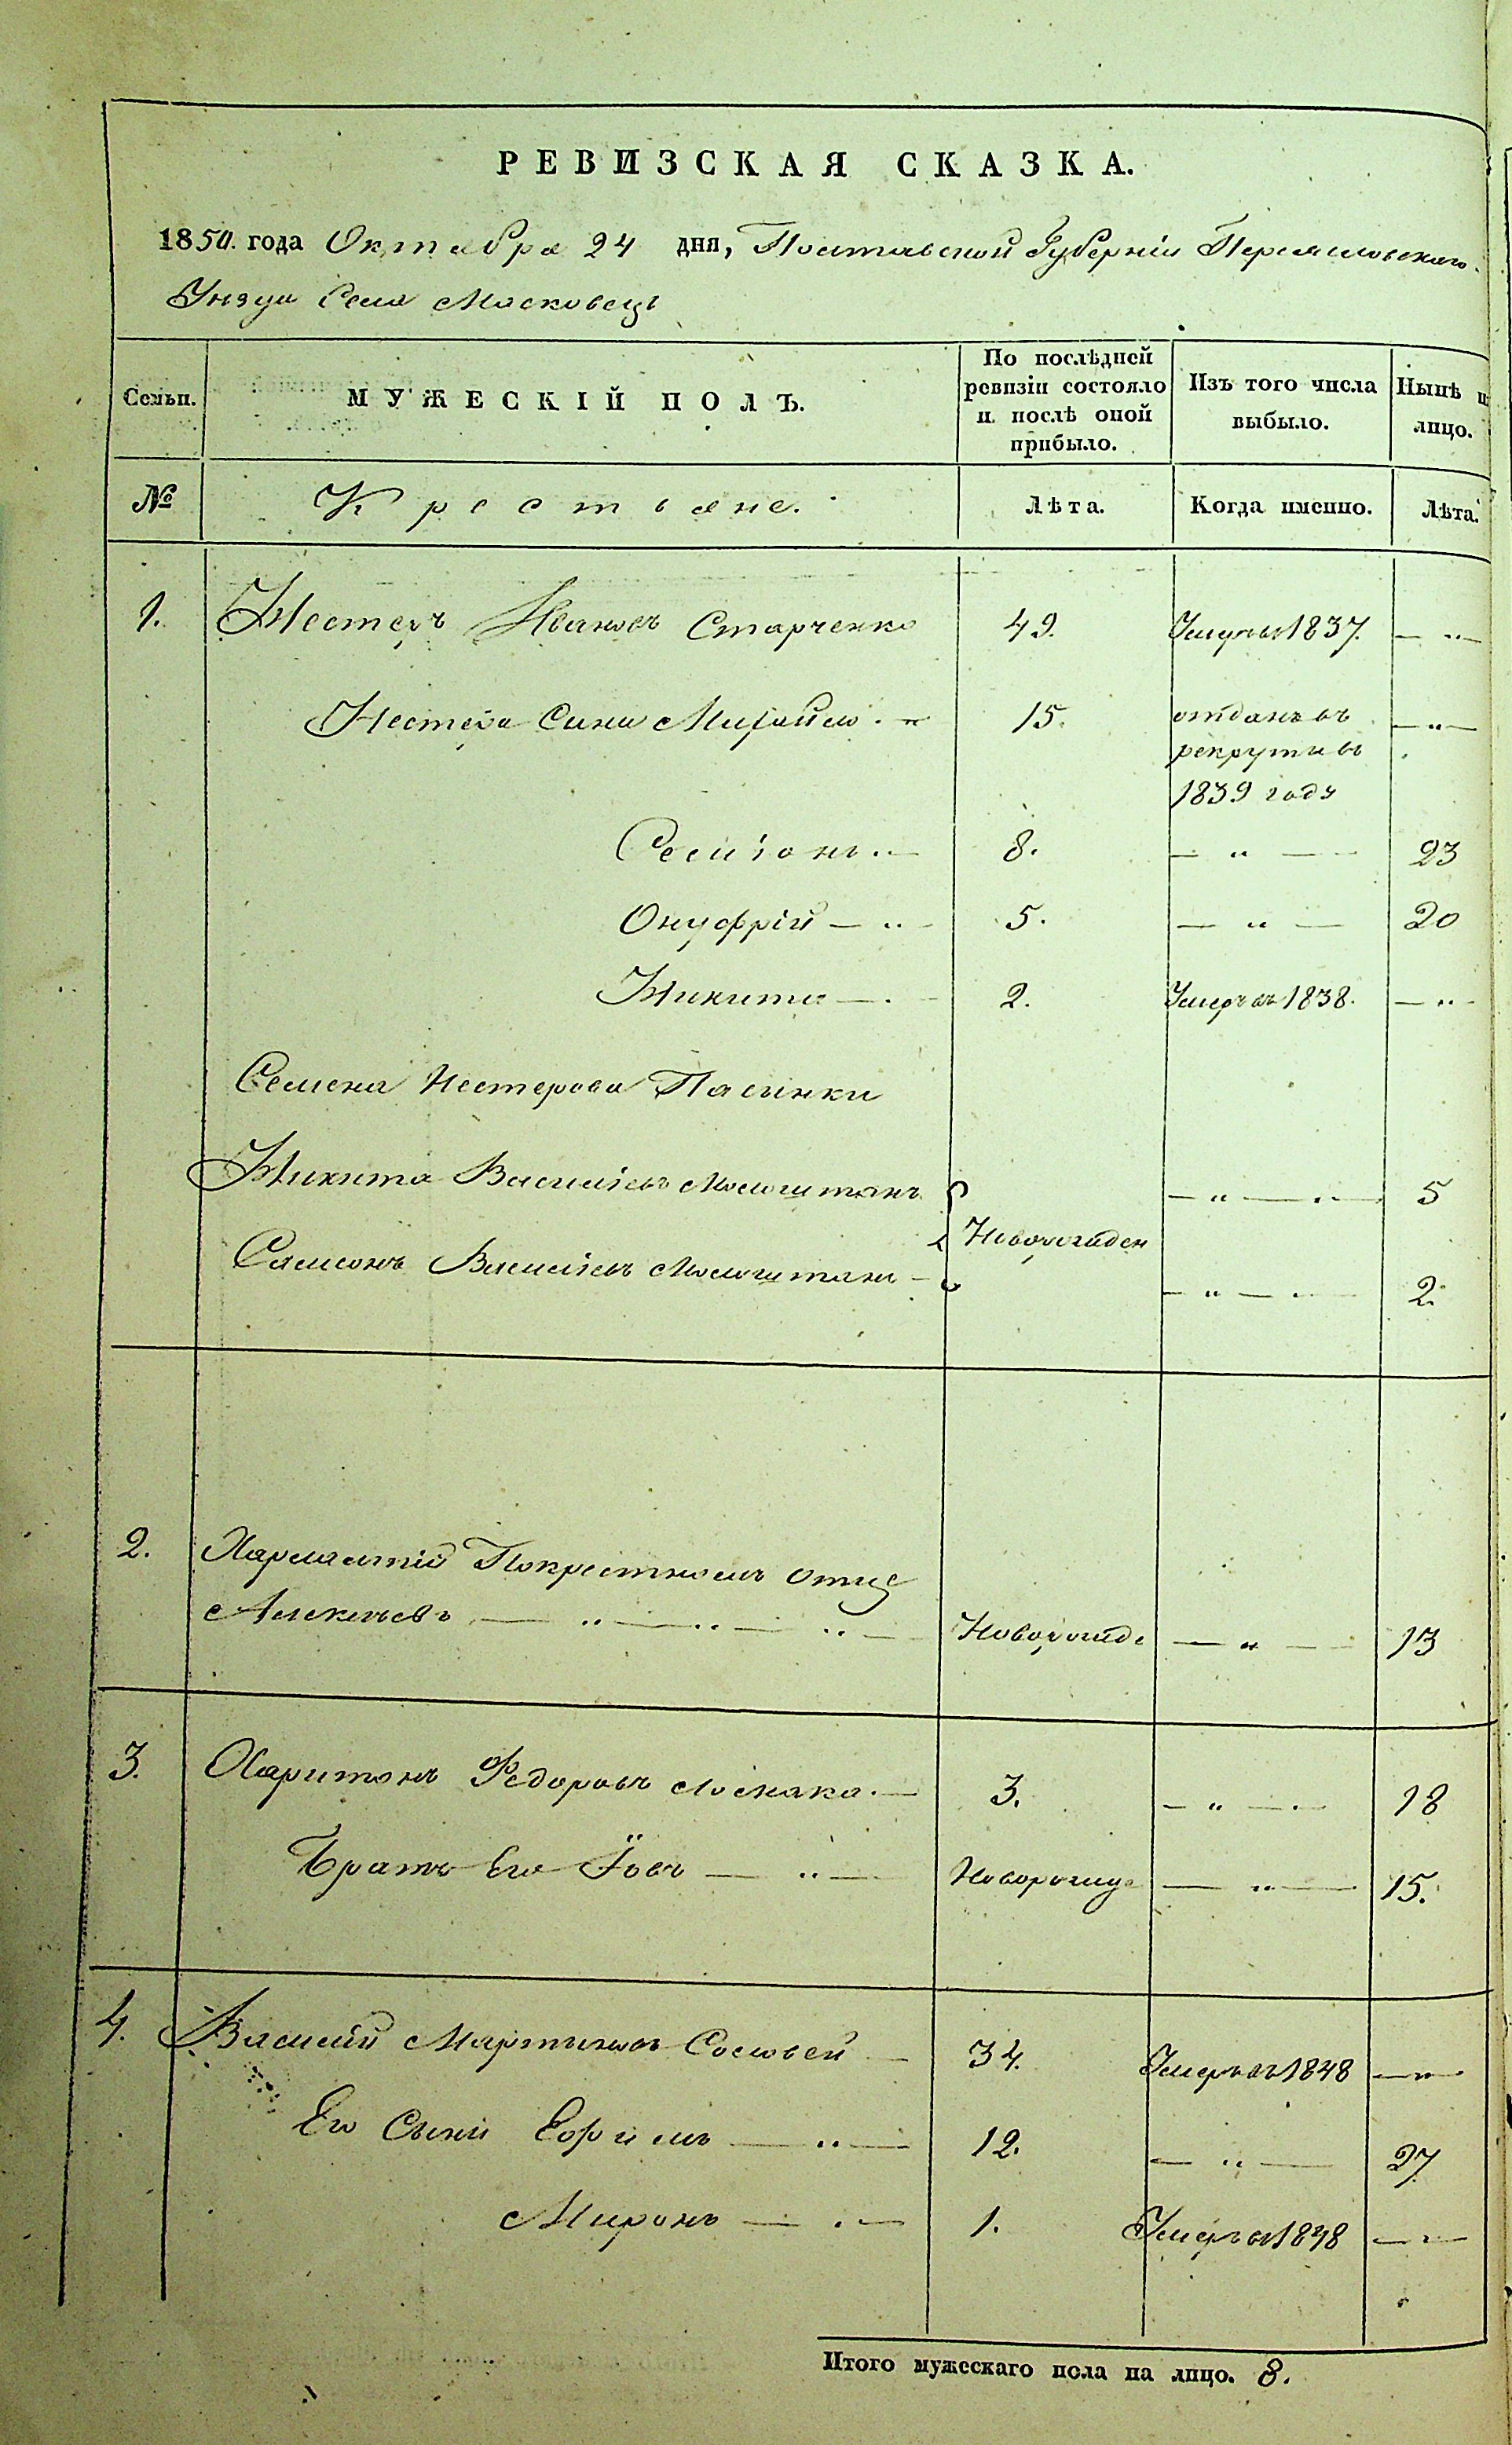 РЕВИЗСКАЯ СКАЗКА.
1850. года Октября 24 дня, Полтавской Губерніи Переяславскаго
Уѣзда Села Московецъ
Семьи. МУЖЕСКІЙ ПОЛЪ. По послѣдней ревизіи состояло и послѣ оной прибыло. Изъ того числа выбыло. Нынѣ на лицо.
№ Крестьяне. Лѣта. Когда именно. Лѣта.
1. Нестеръ Ивановъ Старченко 49. Умеръ въ 1837. — „ —
Нестера Сини Михайло . „ 15. отданъ въ — „ —
рекруты въ
1839 году
Семіонъ . — 8. — „ — 23
Онуфрій — „ — 5. — „ — 20
Никита — . — 2. Умеръ въ 1838. — „ —
Семена Нестерова Пасынки
Никита Васильевъ — „ — „ — 5
Самсонъ Васильевъ — Новорожден — „ — „ — 2.
2. Хармампій Покрестномъ отце
Алексѣевъ — „ — „ — „ — Новорожде — „ — 13
3. Харитонъ Федоровъ — 3. — „ — 18
Братъ Его Іовъ — „ — Новорожде — „ — 15.
4. Василій Мартиновъ Соловей — 34. Умеръ въ 1848 — „ —
Его Сыни Ефимъ — „ — 12. — „ — 27
Миронъ — „ — 1. Умеръ въ 1848 — „ —
Итого мужескаго пола на лицо. 8.